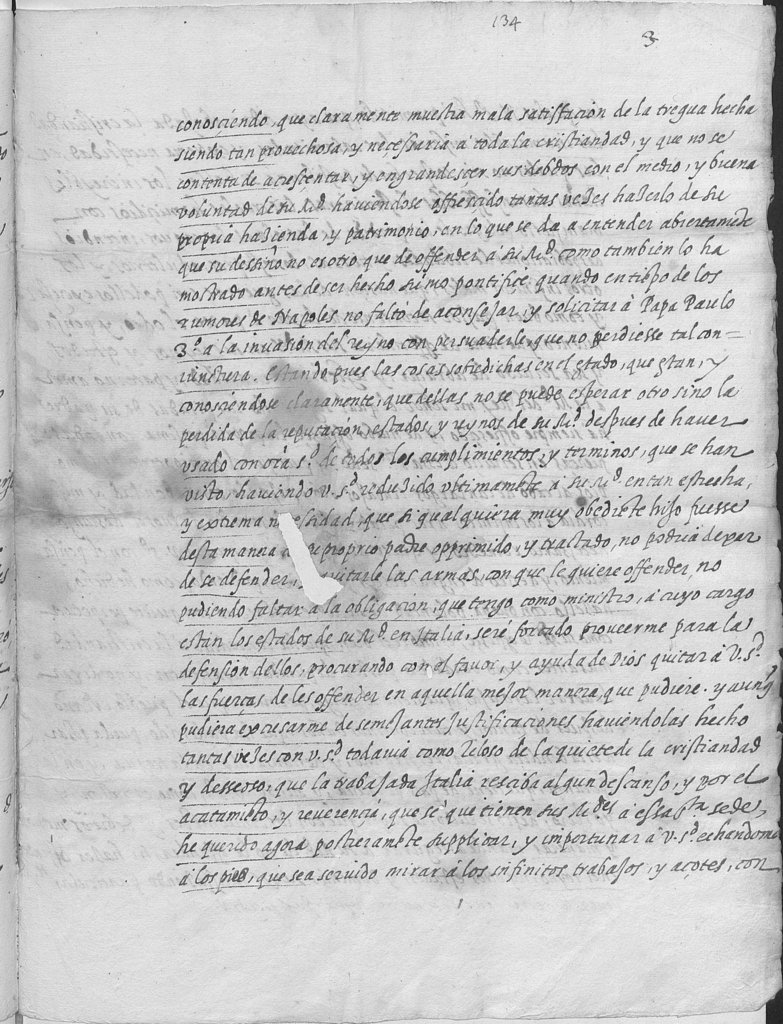 134
3
conosçiendo, que claramente muestra mala satisfaçion de la tregua hecha
siendo tan provechosa, y neçessaria á toda la cristiandad, y que no se
contenta de acresçentar, y engrandesçer sus debdos con el medio, y buena
voluntad de su M.d haviendose offresçido tantas vezes hazerlo de su
propria hazienda, y patrimonio, en lo que se da a entender abiertamẽte
que su desiño no es otro que de offender á su M.d como también lo ha
mostrado antes de ser hecho sumo pontifiçe quando en tiẽpo de los
rumores de Napoles no faltó de aconsejar, y soliçitar á Papa Paulo
3.º a la invasion del reyno con persuaderle, que no perdiesse tal con=
iunctura. Estando pues las cosas sobredichas en el estado, que están, y
conosçiendose claramente, que dellas no se puede esperar otro sino la
perdida de la reputaçion, estados, y reynos de su M.d despues de haver
usado con v̄ra S.d de todos los cumplimientos, y terminos, que se han
visto, haviendo V. S.d reduzido ultimamẽte á su M.d en tan estrecha,
y extrema neçesidad, que si qualquiera muy obediẽte hijo fuesse
desta manera de su proprio padre opprimido, y tractado, no podria dexar
de se defender, y quitarle las armas, con que le quiere offender, no
pudiendo faltar á la obligaçion, que tengo como ministro, á cuyo cargo
están los estados de su M.d en Italia, seré forçado proveerme para la
defension dellos, procurando con el favor, y ayuda de Dios quitar á V. S.d
las fuerças de les offender en aquella mejor manera, que pudiere. y aunq̃
pudiera excusarme de semejantes justificaçiones haviendolas hecho
tantas vezes con V. S.d todavia como zeloso de la quiete de la cristiandad
y desseoso, que la trabajada Italia resciba algun descanso, y por el
acatamiẽto, y reverençia, que sé que tienen sus M.des á essa s.ta sede,
he querido agora postreramẽte supplicar, y importunar á V. S.d echandome
á los pies, que sea servido mirar á los infinitos trabajos, y açotes, con